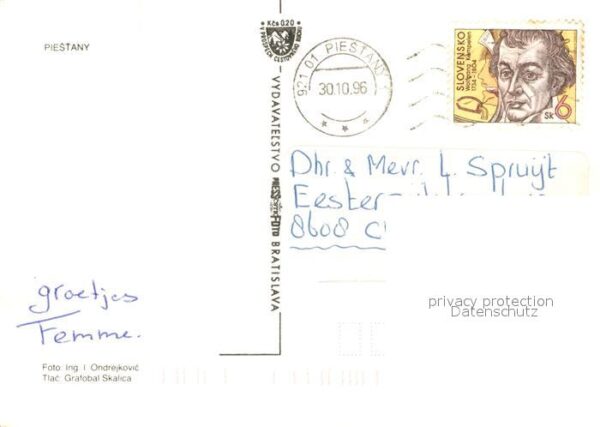 PIEŠŤANY
Kčs 0,20
V PROSPECH CESTOVNÉHO RUCHU
VYDAVATEĽSTVO PRESSFOTO BRATISLAVA
921 01 PIEŠŤANY 1
30.10.96
SLOVENSKO
Wolfgang Kempelen
1734 - 1804
Sk 6
Dhr. & Mevr. L. Spruijt
Eester
8608 C
groetjes
Femme.
privacy protection
Datenschutz
Foto: Ing. I. Ondrejkovič
Tlač: Grafobal Skalica